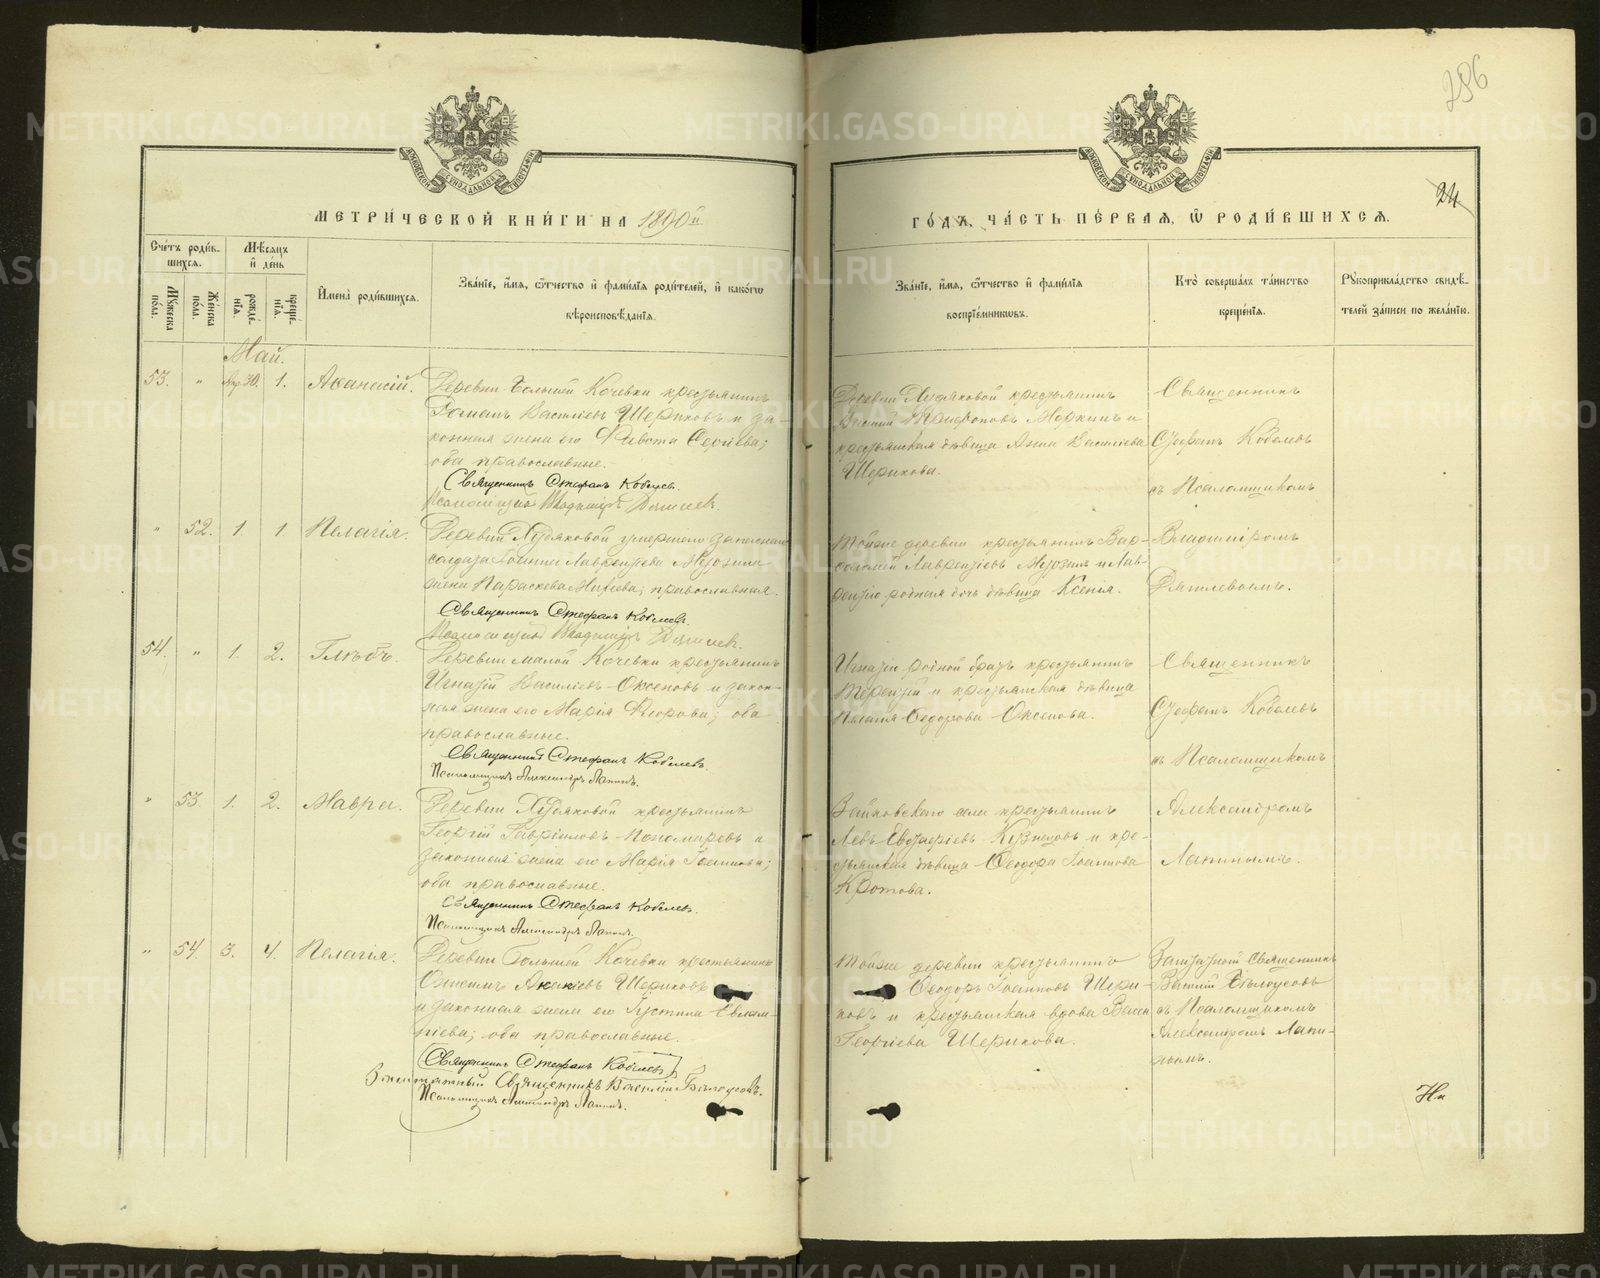 296
24
МЕТРИ́ЧЕСКОЙ КНИ́ГИ НА 1890й
ГО́ДЪ, ЧА́СТЬ ПЕ́РВАЯ, Ѿ РОДИ́ВШИХСЯ.
Сче́тъ роди́вшихся.
Мѣ́сяцъ и де́нь
Му́жеска по́ла.
Же́нска по́ла.
рожде́нїя.
креще́нїя.
Имена̀ роди́вшихся.
Зва́нїе, и́мя, ѻ́тчество и фами́лїя роди́телей, и како́гѡ вѣроисповѣ́данїя.
Зва́нїе, и́мя, ѻ́тчество и фами́лїя воспрїе́мникѡвъ.
Кто̀ соверша́лъ та́инство креще́нїя.
Рꙋкоприкла́дство свидѣ́телей за́писи по жела́нїю.
Май.
53. " Апр 30. 1. Аѳанасій.
Деревни Большей Кочевки крестьянинъ
Романъ Василіевъ Шериховъ и за-
конная жена его Сергіева;
оба православные.
Священникъ Стефанъ Кобелевъ.
Псаломщикъ Владиміръ
Деревни Худяковой крестьянинъ
и
крестьянская дѣвица Анна Василіева
Шерихова.
Священникъ
Стефанъ Кобелевъ
съ Псаломщикомъ
" 52. 1. 1. Пелагія.
Деревни Худяковой умершаго запаснаго
солдата Лаврентіева
жена Параскева православная.
Священникъ Стефанъ Кобелевъ.
Псаломщикъ Владиміръ
Тойже деревни крестьянинъ Вар-
ѳоломей Лаврентіевъ и Лав-
рентія родная дочь дѣвица Ксенія.
Владиміромъ
54. " 1. 2. Глѣбъ.
Деревни Малой Кочевки крестьянинъ
Игнатій Василіевъ Оксеновъ и закон-
ная жена его Марія оба
православные.
Священникъ Стефанъ Кобелевъ.
Псаломщикъ Александръ Лапинъ.
Игнатія родной братъ крестьянинъ
Терентій и крестьянская дѣвица
Пелагія Ѳеодорова Оксенова.
Священникъ
Стефанъ Кобелевъ
съ Псаломщикомъ
" 53. 1. 2. Мавра.
Деревни Худяковой крестьянинъ
Георгій Гавріиловъ Пономаревъ и
законная жена его Марія Іоаннова;
оба православные.
Священникъ Стефанъ Кобелевъ.
Псаломщикъ Александръ Лапинъ.
Зайковскаго села крестьянинъ
Левъ Евстафіевъ Кузнецовъ и кре-
стьянская дѣвица Ѳеодора Іоаннова
Кротова.
Александромъ
Лапинымъ.
" 54. 3. 4. Пелагія.
Деревни Большей Кочевки крестьянинъ
Онисимъ Шериховъ
и законная жена его Іустина Евлам-
піева; оба православные.
Священникъ Стефанъ Кобелевъ
Заштатный Священникъ Василій Бѣлоусовъ.
Псаломщикъ Александръ Лапинъ.
Тойже деревни крестьянинъ
Ѳеодоръ Іоанновъ Шери-
ховъ и крестьянская вдова Васса
Георгіева Шерихова.
Заштатной Священникъ
Василій Бѣлоусовъ
съ Псаломщикомъ
Александромъ Лапи-
нымъ.
METRIKI.GASO-URAL.RU